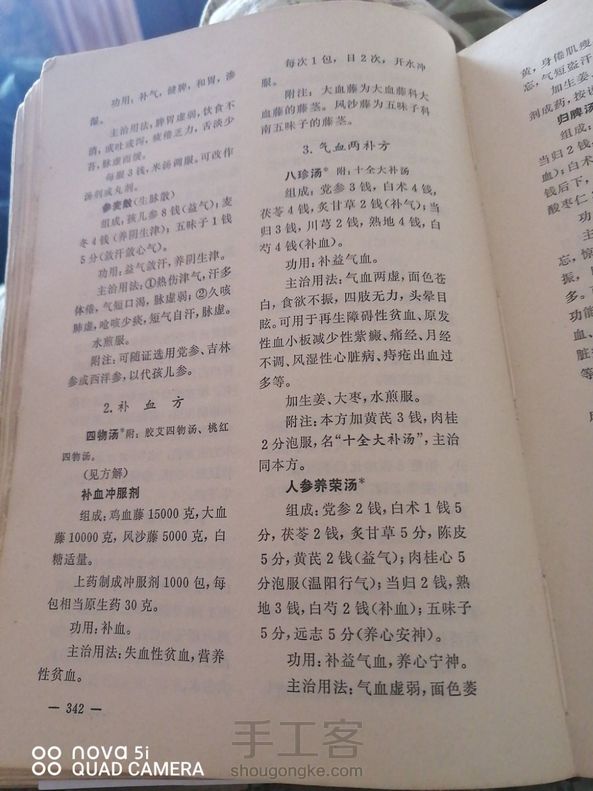 功用：补气，健脾，和胃，渗
湿。
主治用法：脾胃虚弱，饮食不
消，或吐或泻，疲倦乏力，舌淡少
苔，脉虚而缓。
每服3钱，米汤调服。可改作
汤剂或丸剂。
参麦散（生脉散）
组成：孩儿参8钱（益气）；麦
冬4钱（养阴生津）；五味子1钱
5分（敛汗敛心气）。
功用：益气敛汗，养阴生津。
主治用法：①热伤津气，汗多
体倦，气短口渴，脉虚弱；②久咳
肺虚，呛咳少痰，短气自汗，脉虚。
水煎服。
附注：可随证选用党参、吉林
参或西洋参，以代孩儿参。
2.补血方
四物汤*附：胶艾四物汤、桃红
四物汤。
（见方解）
补血冲服剂
组成：鸡血藤15000克，大血
藤10000克，风沙藤5000克，白
糖适量。
上药制成冲服剂1000包，每
包相当原生药30克。
功用：补血。
主治用法：失血性贫血，营养
性贫血。
— 342 —
每次1包，日2次，开水冲
服。
附注：大血藤为大血藤科大
血藤的藤茎。风沙藤为五味子科
南五味子的藤茎。
3.气血两补方
八珍汤*附：十全大补汤
组成：党参3钱，白术4钱，
茯苓4钱，炙甘草2钱（补气）；当
归3钱，川芎2钱，熟地4钱，白
芍4钱（补血）。
功用：补益气血。
主治用法：气血两虚，面色苍
白，食欲不振，四肢无力，头晕目
眩。可用于再生障碍性贫血、原发
性血小板减少性紫癜、痛经、月经
不调、风湿性心脏病、痔疮出血过
多等。
加生姜、大枣，水煎服。
附注：本方加黄芪3钱，肉桂
2分泡服，名“十全大补汤”，主治
同本方。
人参养荣汤*
组成：党参2钱，白术1钱5
分，茯苓2钱，炙甘草5分，陈皮
5分，黄芪2钱（益气）；肉桂心5
分泡服（温阳行气）；当归2钱，熟
地3钱，白芍2钱（补血）；五味子
5分，远志5分（养心安神）。
功用：补益气血，养心宁神。
主治用法：气血虚弱，面色萎
黄，身倦肌瘦
忘，气短盗汗
加生姜、
剂成药，按
归脾汤
组成：
当归2钱
钱）；白术
钱后下，
酸枣仁2
功
主
忘，惊
振，
多。
功能
血、
等
nova 5i
QUAD CAMERA
手工客
shougongke.com